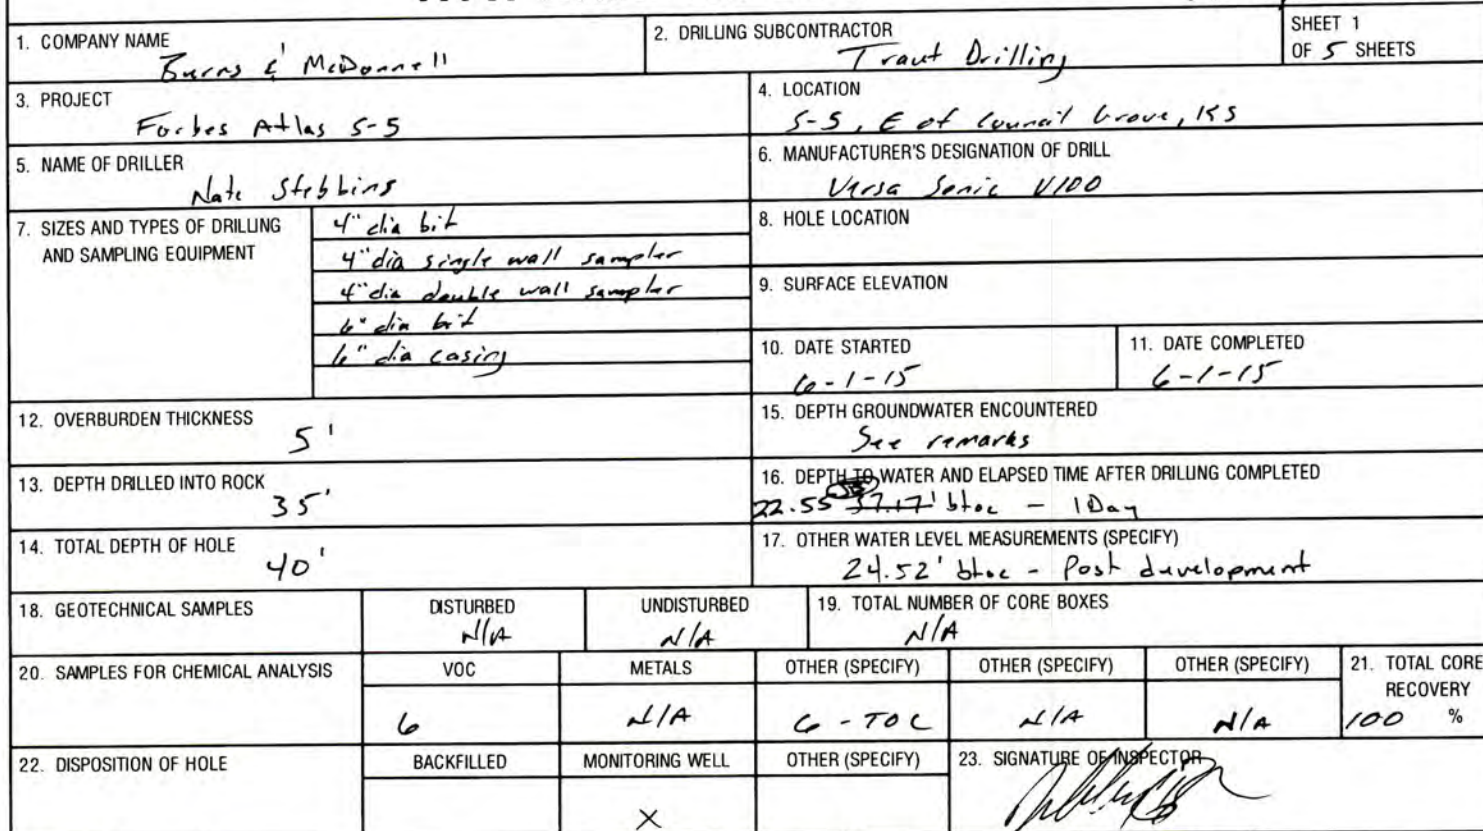 1. COMPANY NAME
Burns & McDonnell
2. DRILLING SUBCONTRACTOR
Traut Drilling
SHEET 1
OF 5 SHEETS
3. PROJECT
Forbes Atlas S-5
4. LOCATION
S-5, E of Council Grove, KS
5. NAME OF DRILLER
Nate Stebbins
6. MANUFACTURER'S DESIGNATION OF DRILL
Versa Sonic V100
7. SIZES AND TYPES OF DRILLING
AND SAMPLING EQUIPMENT
4" dia bit
4" dia single wall sampler
4" dia double wall sampler
6" dia bit
6" dia casing
8. HOLE LOCATION
9. SURFACE ELEVATION
10. DATE STARTED
6-1-15
11. DATE COMPLETED
6-1-15
12. OVERBURDEN THICKNESS
5'
15. DEPTH GROUNDWATER ENCOUNTERED
See remarks
13. DEPTH DRILLED INTO ROCK
35'
16. DEPTH TO WATER AND ELAPSED TIME AFTER DRILLING COMPLETED
22.55 37.17' btoc - 1 Day
14. TOTAL DEPTH OF HOLE
40'
17. OTHER WATER LEVEL MEASUREMENTS (SPECIFY)
24.52' btoc - Post development
18. GEOTECHNICAL SAMPLES
DISTURBED
N/A
UNDISTURBED
N/A
19. TOTAL NUMBER OF CORE BOXES
N/A
20. SAMPLES FOR CHEMICAL ANALYSIS
VOC
6
METALS
N/A
OTHER (SPECIFY)
6 - TOC
OTHER (SPECIFY)
N/A
OTHER (SPECIFY)
N/A
21. TOTAL CORE
RECOVERY
100 %
22. DISPOSITION OF HOLE
BACKFILLED
MONITORING WELL
X
OTHER (SPECIFY)
23. SIGNATURE OF INSPECTOR